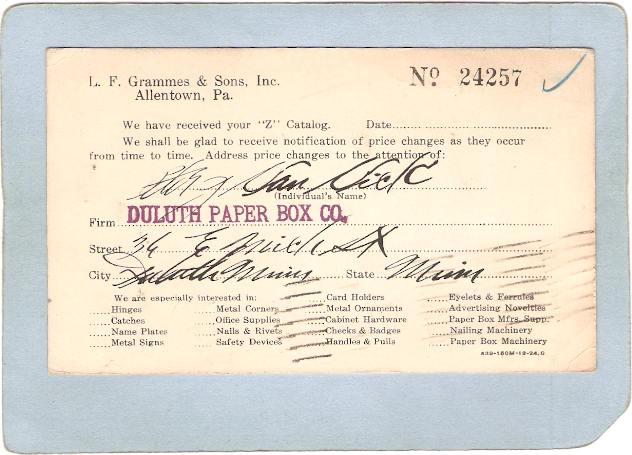 L. F. Grammes & Sons, Inc. Nº 24257
Allentown, Pa.
We have received your "Z" Catalog. Date
We shall be glad to receive notification of price changes as they occur
from time to time. Address price changes to the attention of:
Van Vleck
(Individual's Name)
Firm DULUTH PAPER BOX CO.
Street 36 E Mich St
City Duluth Minn State Minn
We are especially interested in:
Hinges Metal Corners Card Holders Eyelets & Ferrules
Catches Office Supplies Metal Ornaments Advertising Novelties
Name Plates Nails & Rivets Cabinet Hardware Paper Box Mfrs. Supp.
Metal Signs Safety Devices Checks & Badges Nailing Machinery
Handles & Pulls Paper Box Machinery